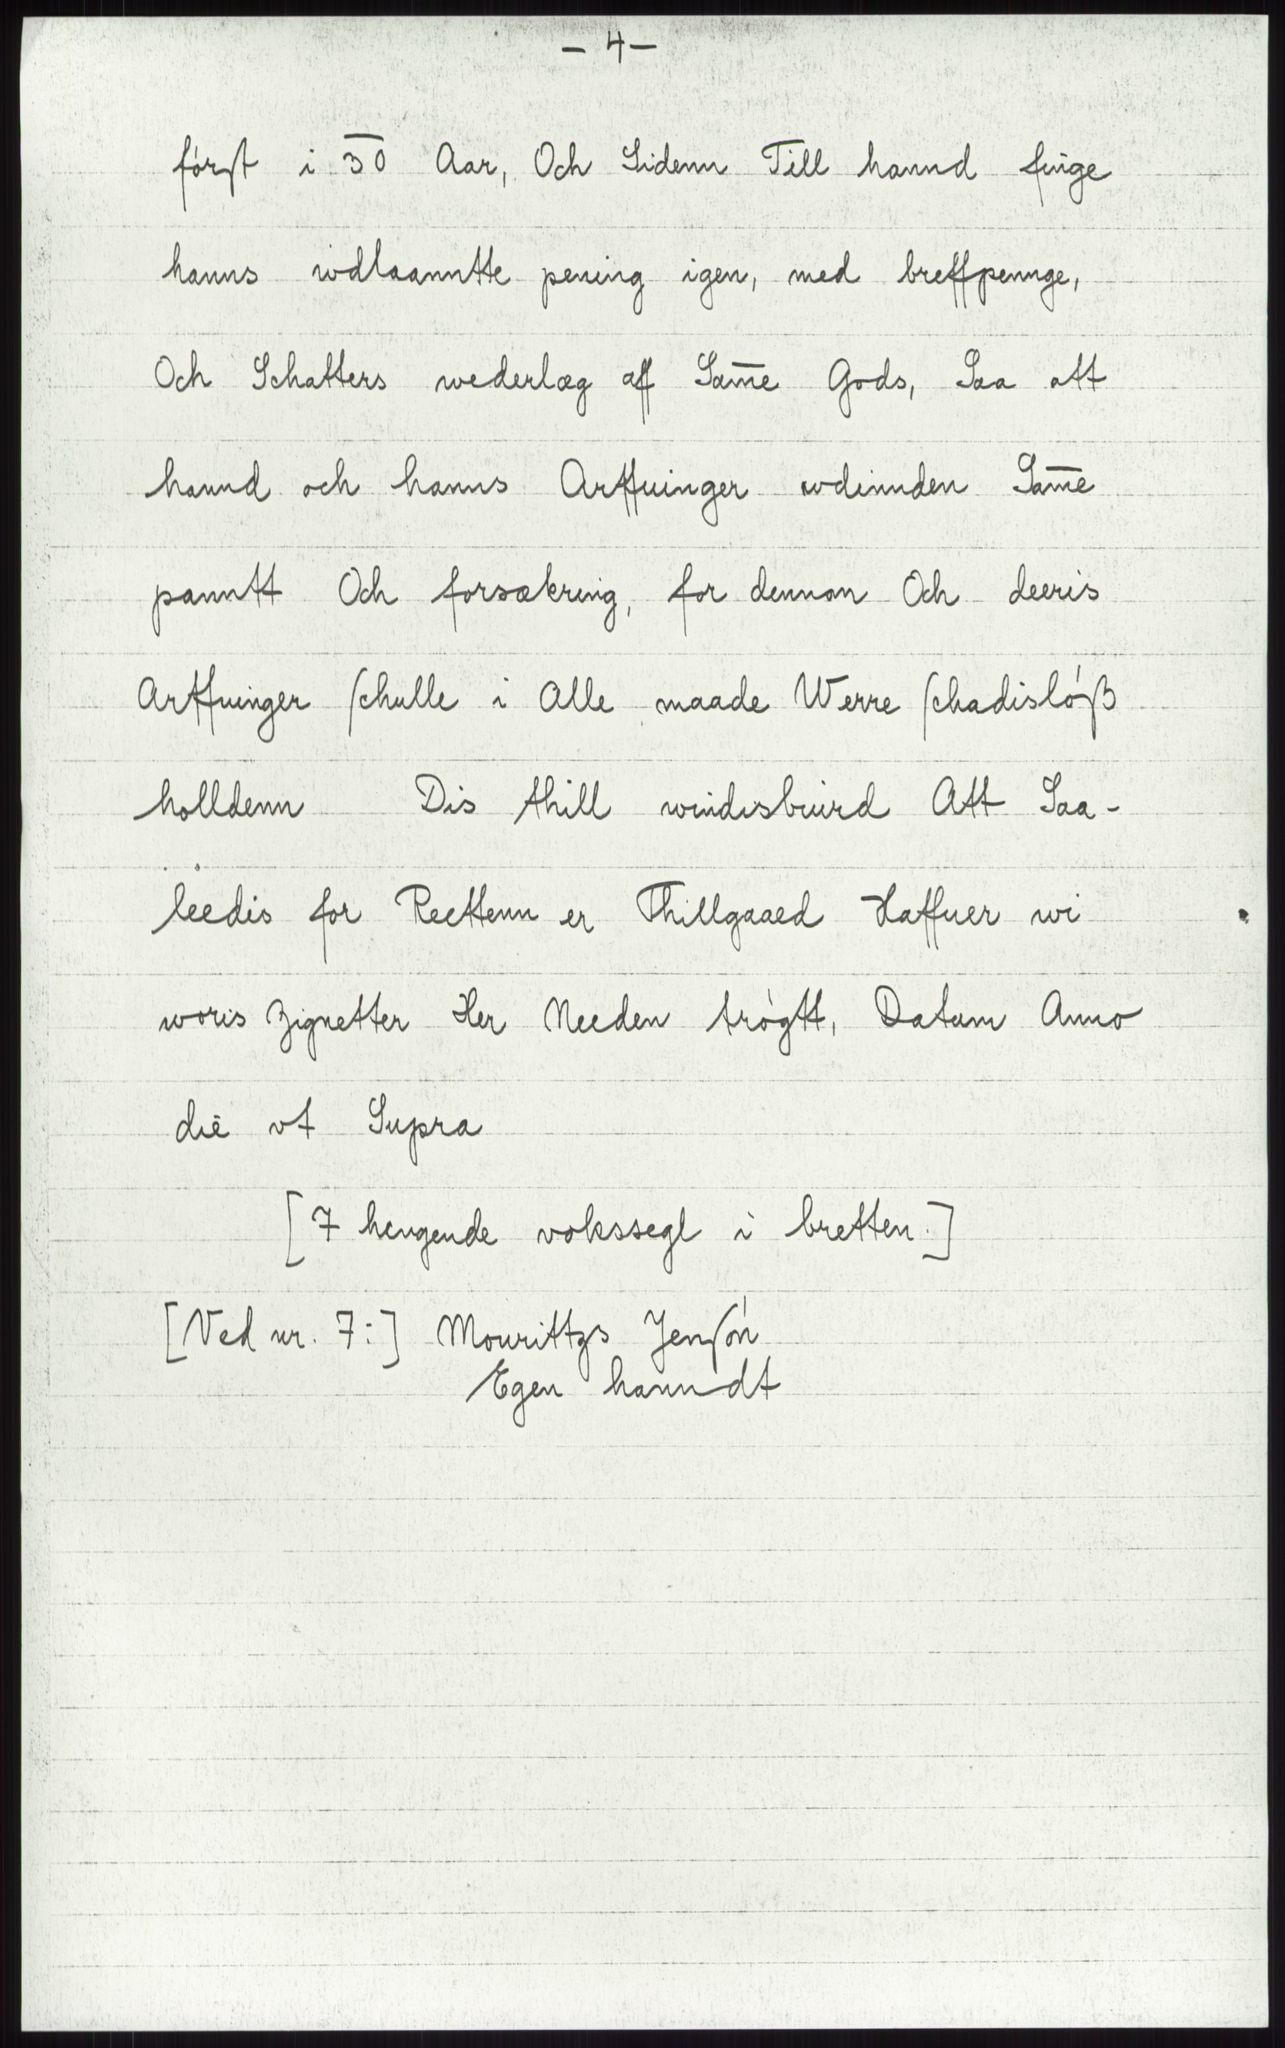 - 4 -
fórst i 30 Aar, Och Sidenn Till hannd finge
hanns wdlaanntte pening igen, med breffpennge,
Och Schatters wederlæg aff Sam̅e Gods, Saa att
hannd och hanns Arffuinger wdinnden Sam̅e
panntt Och forsækring, for dennom Och deeris
Arffuinger schulle i Alle maade Werre schadislóß
holldenn Dis thill windisbiurd Att Saa-
leedis for Rettenn er Thillgaaed Haffuer wi
woris Zignetter Her Needen trógtt, Datum Anno
die vt Supra
[7 hengende vokssegl i bretten.]
[Ved nr. 7:] Mourittzs Jensón
Egen hanndt